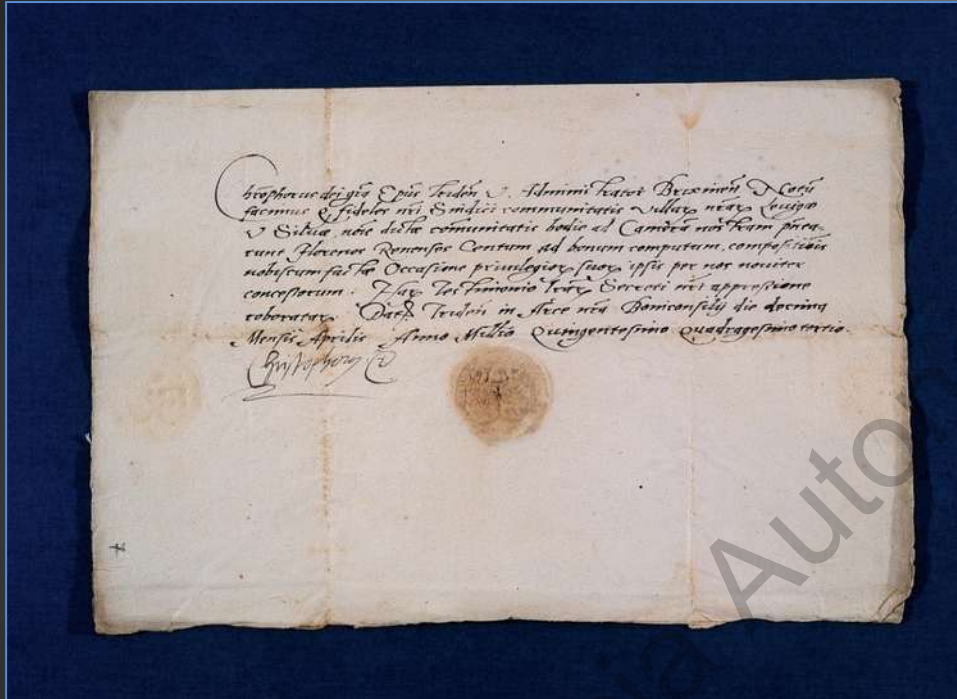 Chrophorus dei gra Epus Triden & Administrator Brixinen Notu
facimus q fideles nri Sindici communitatis Villar nrar Leuigi
& Siluæ, noie dictæ comunitatis hodie ad Camera nostram pñta
runt Florenos Renenses Centum ad bonum computum, compositiõis
nobiscum factæ Occasione priuilegior suor ipsis per nos nouiter
concessorum. Har testimonio lrar Secreti nri appressione
roboratar. Dat Triden in Arce nra Bonconsilij die decima
Mensis Aprilis Anno Millio Quingentesimo Quadragesimotertio.
Christophorus
Auto